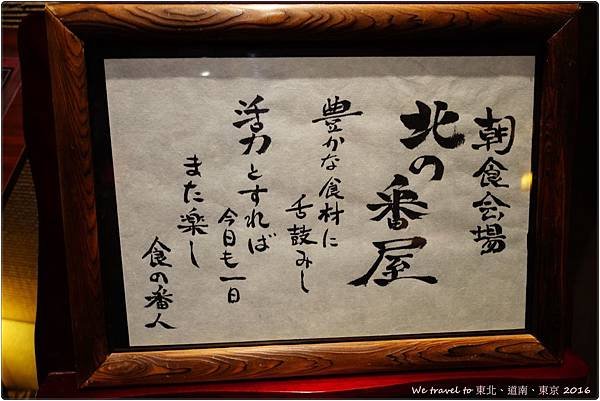 朝食会場
北の番屋
豊かな食材に
舌鼓みし
活力とすれば
今日も一日
また楽し
食の番人
We travel to 東北、道南、東京 2016